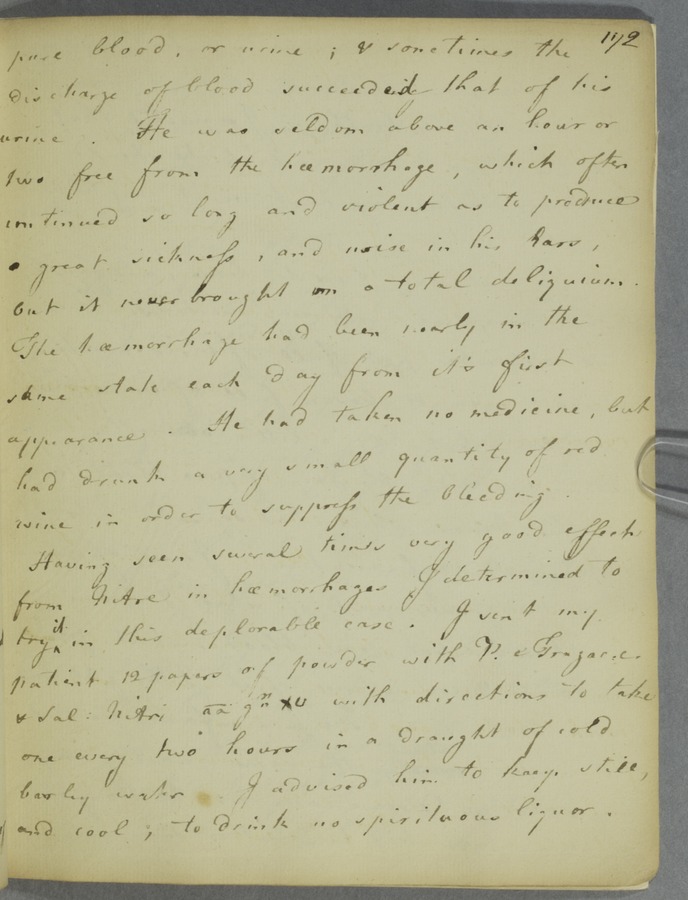 172
pure blood, or urine ; & sometimes the
discharge of blood succeeded that of his
urine . He was seldom above an hour or
two free from the hœmorrhage, which often
continued so long and violent as to produce
a great sickness, and noise in his Ears,
but it never brought on a total deliquium.
The hœmorrhage had been nearly in the
same state each day from it's first
appearance . He had taken no medicine, but
had drunk a very small quantity of red
wine in order to suppress the bleeding .
Having seen several times very good effects
from Nitre in hœmorrhages I determined to
try it in this deplorable case . I sent my
patient 12 papers of powder with P. e Tragac:e
& Sal: Nitri āā grn xv with directions to take
one every two hours in a draught of cold
barley water . I advised him to keep still,
and cool ; to drink no spirituous liquor .